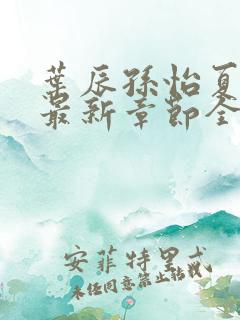 葉辰孫怡夏
最新章節全
安菲特里忒
未经同意禁止转载